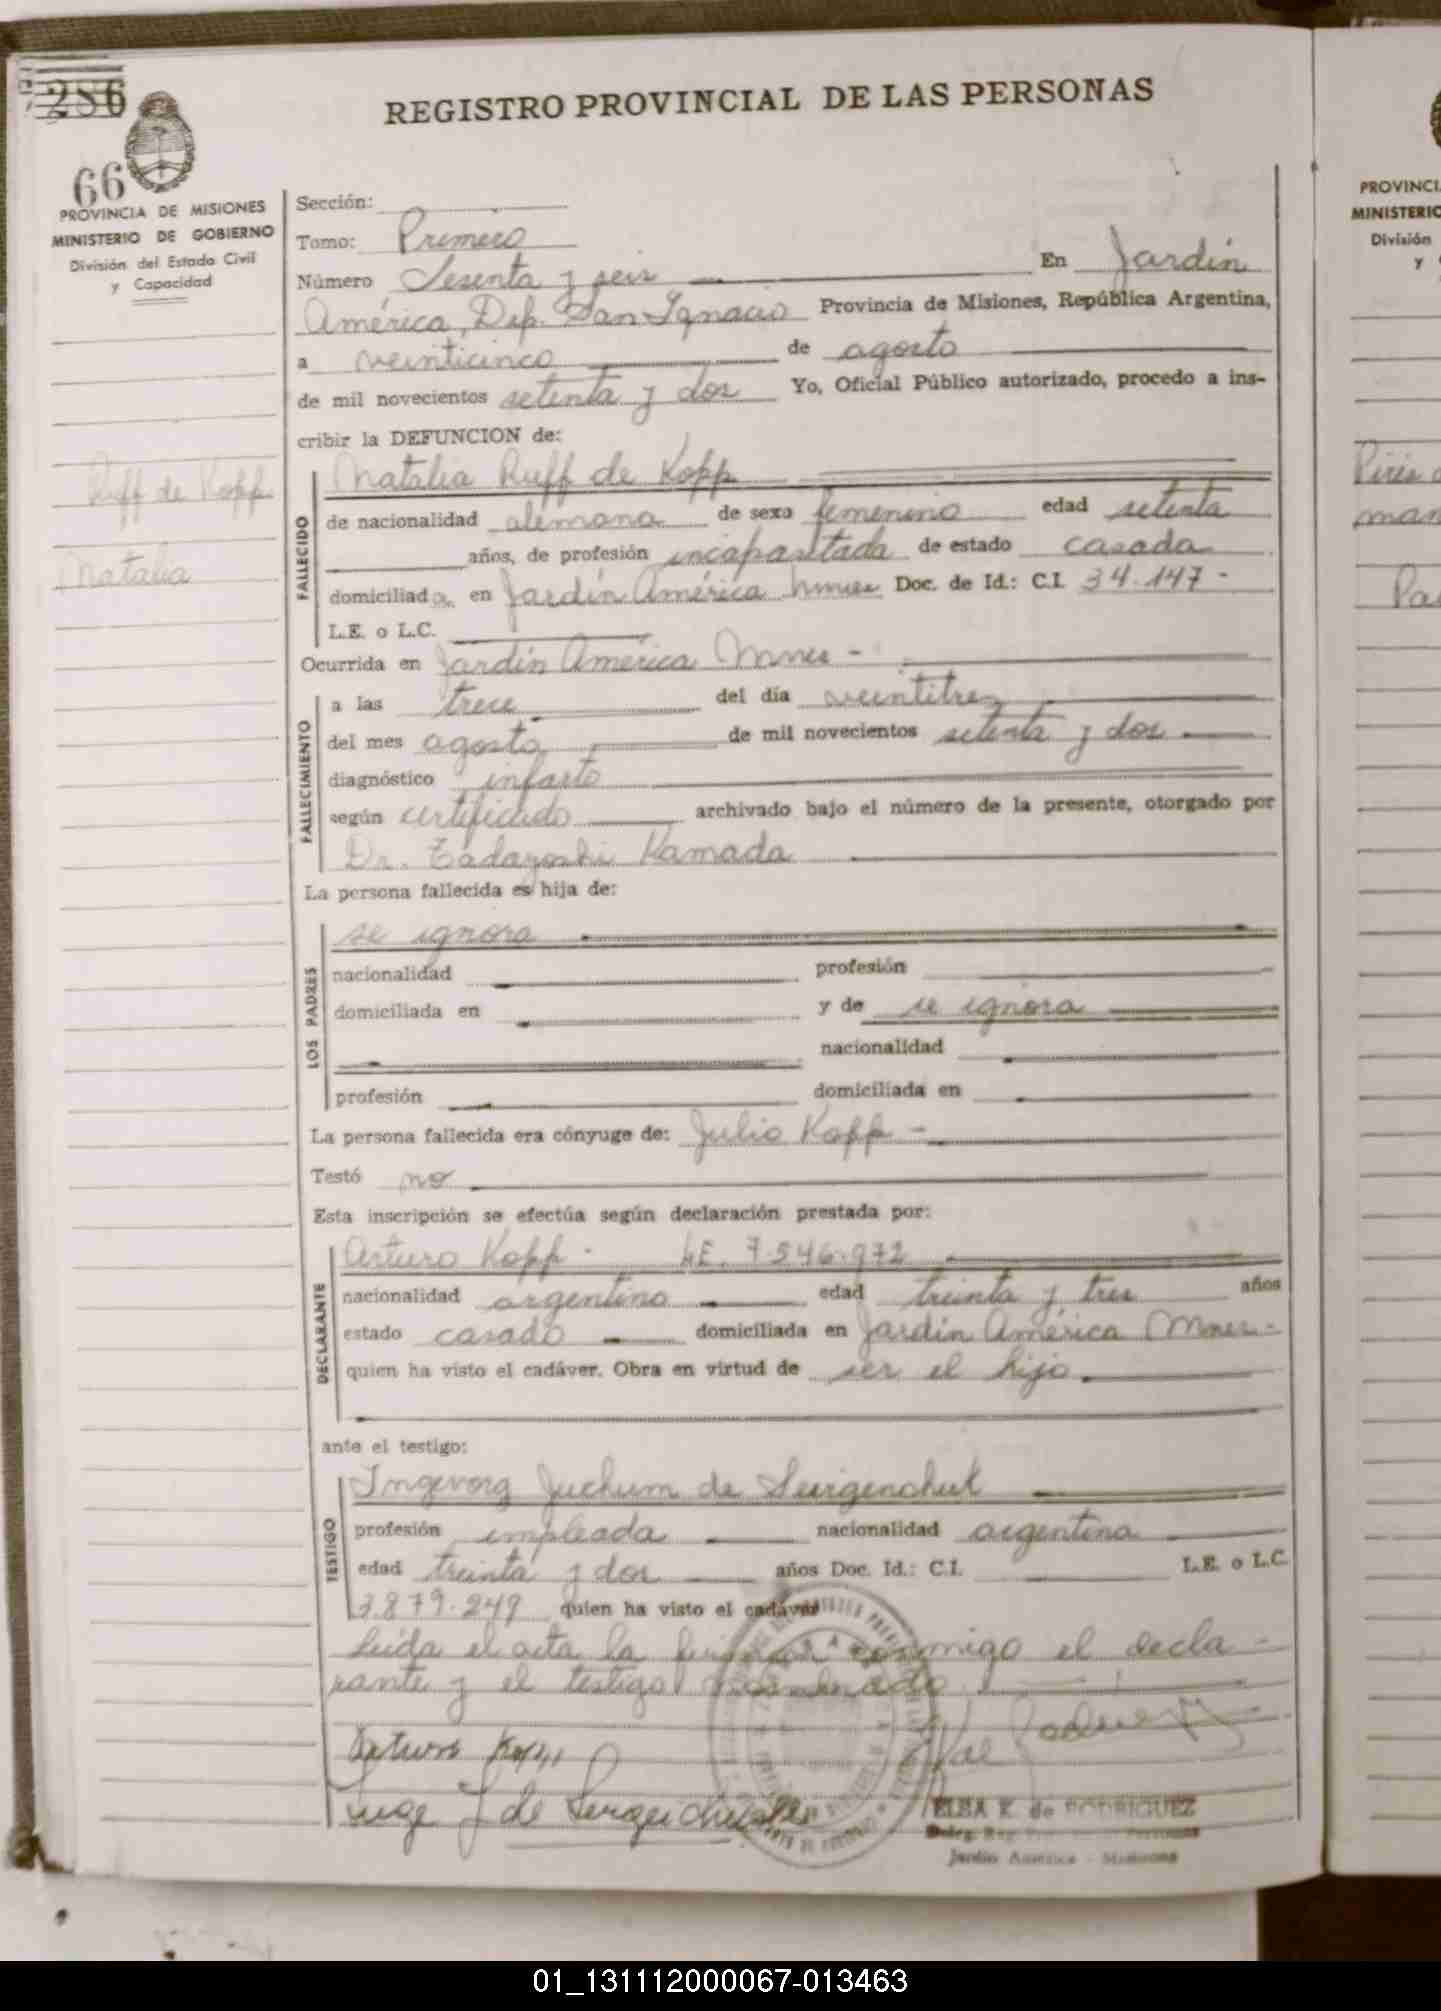 286
REGISTRO PROVINCIAL DE LAS PERSONAS
66
PROVINCIA DE MISIONES
MINISTERIO DE GOBIERNO
División del Estado Civil
y Capacidad
Ruff de Kopp
Natalia
Sección:
Tomo: Primero
Número Sesenta y seis En Jardín
América, Dep. San Ignacio Provincia de Misiones, República Argentina,
a veinticinco de agosto
de mil novecientos setenta y dos Yo, Oficial Público autorizado, procedo a ins-
cribir la DEFUNCION de:
FALLECIDO
Natalia Ruff de Kopp
de nacionalidad alemana de sexo femenino edad setenta
años, de profesión incapasitada de estado casada
domiciliada en Jardín América Mnes Doc. de Id.: C.I. 34.147-
L.E. o L.C.
Ocurrida en Jardín América Mnes-
FALLECIMIENTO
a las trece del día veintitres
del mes agosto de mil novecientos setenta y dos
diagnóstico infarto
según certificado archivado bajo el número de la presente, otorgado por
Dr. Tadayoshi Kamada
La persona fallecida es hija de:
LOS PADRES
se ignora
nacionalidad profesión
domiciliada en y de se ignora
nacionalidad
profesión domiciliada en
La persona fallecida era cónyuge de: Julio Kopp-
Testó no
Esta inscripción se efectúa según declaración prestada por:
DECLARANTE
Arturo Kopp- LE. 7.546.972
nacionalidad argentino edad treinta y tres años
estado casado domiciliada en Jardín América Mnes-
quien ha visto el cadáver. Obra en virtud de ser el hijo
ante el testigo:
TESTIGO
Ingevorg Juchum de
profesión empleada nacionalidad argentina
edad treinta y dos años Doc. Id.: C.I. L.E. o L.C.
3.879.249 quien ha visto el cadáver
Leída el acta la firman conmigo el decla-
rante y el testigo nombrado
Arturo Kopp
Inge J de
ELBA K. de RODRIGUEZ
Jardín América - Misiones
PROVINCI
MINISTERIO
División
y
01_131112000067-013463